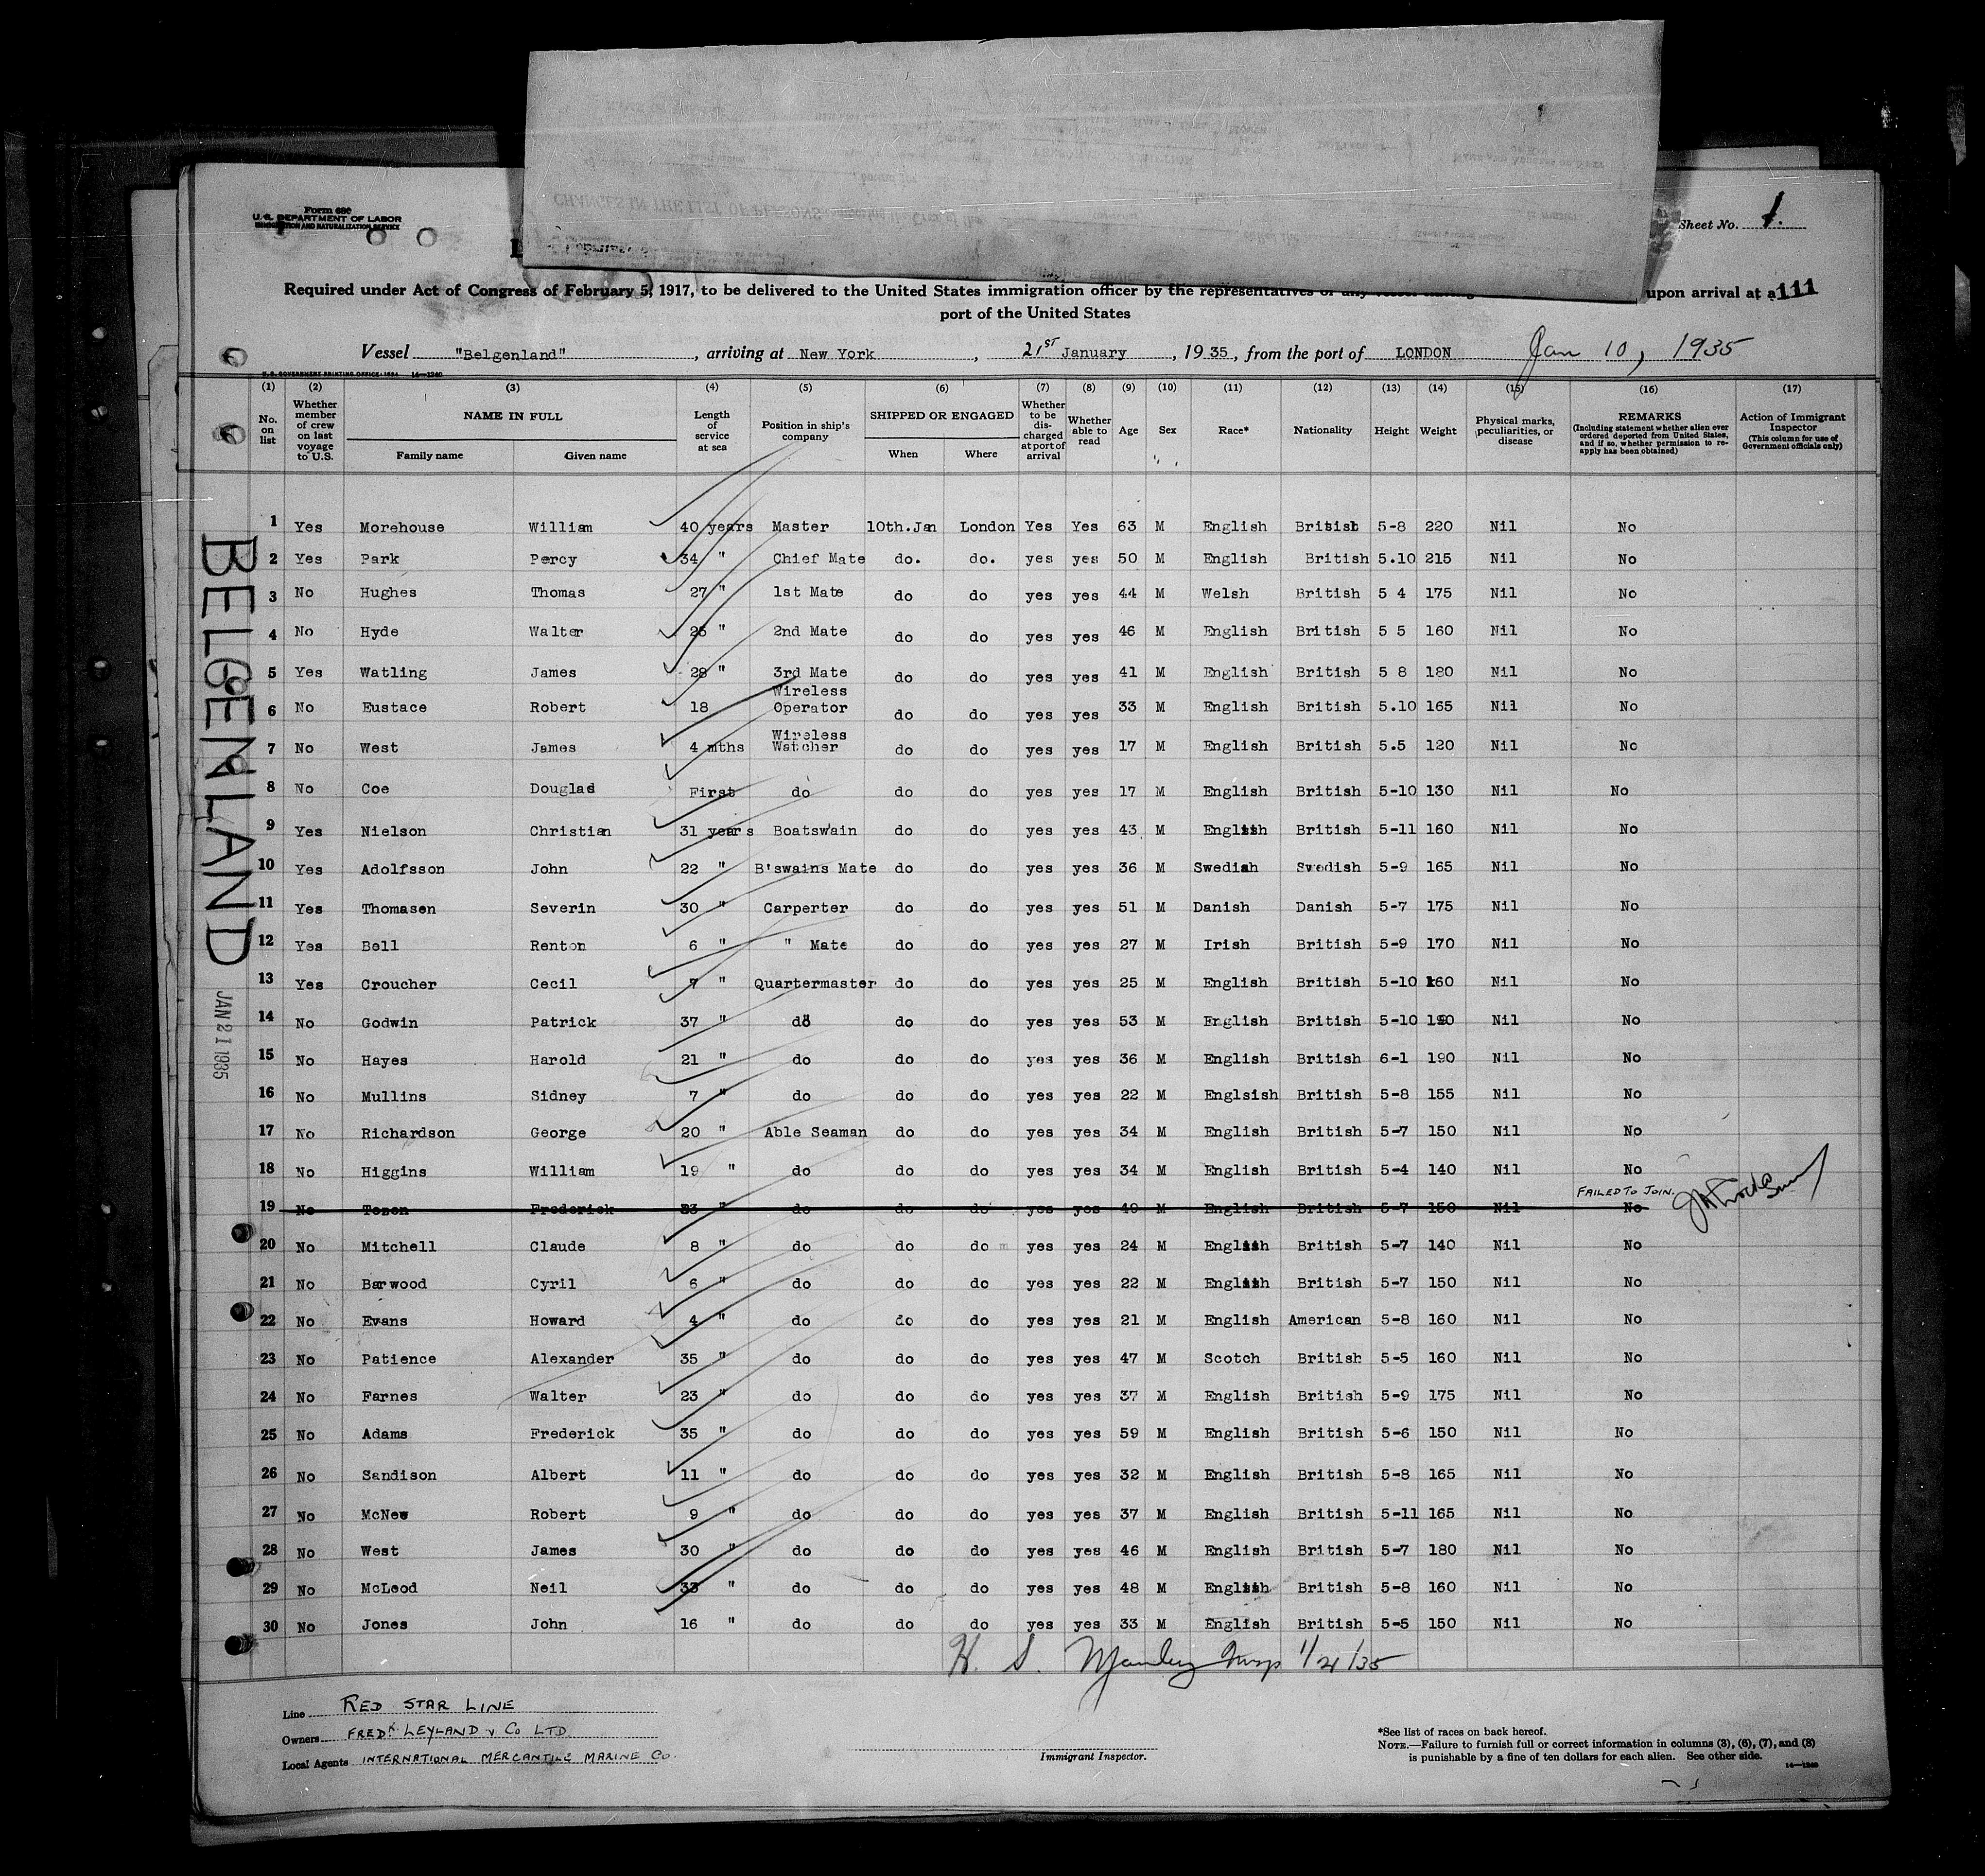 Form 680
U. S. DEPARTMENT OF LABOR
IMMIGRATION AND NATURALIZATION SERVICE
Sheet No. 1.
Required under Act of Congress of February 5, 1917, to be delivered to the United States immigration officer by the representatives of any upon arrival at a 111
port of the United States
Vessel "Belgenland", arriving at New York, 21ST January, 1935, from the port of LONDON Jan 10, 1935
U. S. GOVERNMENT PRINTING OFFICE: 1934 14—1240
(1) (2) (3) (4) (5) (6) (7) (8) (9) (10) (11) (12) (13) (14) (15) (16) (17)
No. on list
Whether member of crew on last voyage to U.S.
NAME IN FULL
Family name Given name
Length of service at sea
Position in ship's company
SHIPPED OR ENGAGED
When Where
Whether to be discharged at port of arrival
Whether able to read
Age
Sex
Race*
Nationality
Height
Weight
Physical marks, peculiarities, or disease
REMARKS
(Including statement whether alien ever ordered deported from United States, and if so, whether permission to reapply has been obtained)
Action of Immigrant Inspector
(This column for use of Government officials only)
1 Yes Morehouse William 40 years Master 10th.Jan London Yes Yes 63 M English British 5-8 220 Nil No
2 Yes Park Percy 34 " Chief Mate do. do. yes yes 50 M English British 5.10 215 Nil No
3 No Hughes Thomas 27 " 1st Mate do do yes yes 44 M Welsh British 5 4 175 Nil No
4 No Hyde Walter " 2nd Mate do do yes yes 46 M English British 5 5 160 Nil No
5 Yes Watling James 28 " 3rd Mate do do yes yes 41 M English British 5 8 180 Nil No
6 No Eustace Robert 18 Wireless Operator do do yes yes 33 M English British 5.10 165 Nil No
7 No West James 4 mths Wireless Watcher do do yes yes 17 M English British 5.5 120 Nil No
8 No Coe Douglad First do do do yes yes 17 M English British 5-10 130 Nil No
9 Yes Nielson Christian 31 years Boatswain do do yes yes 43 M English British 5-11 160 Nil No
10 Yes Adolfsson John 22 " B'swains Mate do do yes yes 36 M Swedish Swedish 5-9 165 Nil No
11 Yes Thomasen Severin 30 " Carperter do do yes yes 51 M Danish Danish 5-7 175 Nil No
12 Yes Bell Renton 6 " " Mate do do yes yes 27 M Irish British 5-9 170 Nil No
13 Yes Croucher Cecil 7 " Quartermaster do do yes yes 25 M English British 5-10 160 Nil No
14 No Godwin Patrick 37 " do do do yes yes 53 M English British 5-10 190 Nil No
15 No Hayes Harold 21 " do do do yes yes 36 M English British 6-1 190 Nil No
16 No Mullins Sidney 7 " do do do yes yes 22 M Englsish British 5-8 155 Nil No
17 No Richardson George 20 " Able Seaman do do yes yes 34 M English British 5-7 150 Nil No
18 No Higgins William 19 " do do do yes yes 34 M English British 5-4 140 Nil No
FAILED TO JOIN.
19 No Frederick " do do do yes yes 49 M English British 5-7 150 Nil No
20 No Mitchell Claude 8 " do do do yes yes 24 M English British 5-7 140 Nil No
21 No Barwood Cyril 6 " do do do yes yes 22 M English British 5-7 150 Nil No
22 No Evans Howard 4 " do do do yes yes 21 M English American 5-8 160 Nil No
23 No Patience Alexander 35 " do do do yes yes 47 M Scotch British 5-5 160 Nil No
24 No Farnes Walter 23 " do do do yes yes 37 M English British 5-9 175 Nil No
25 No Adams Frederick 35 " do do do yes yes 59 M English British 5-6 150 Nil No
26 No Sandison Albert 11 " do do do yes yes 32 M English British 5-8 165 Nil No
27 No McNew Robert 9 " do do do yes yes 37 M English British 5-11 165 Nil No
28 No West James 30 " do do do yes yes 46 M English British 5-7 180 Nil No
29 No McLeod Neil 33 " do do do yes yes 48 M English British 5-8 160 Nil No
30 No Jones John 16 " do do do yes yes 33 M English British 5-5 150 Nil No
BELGENLAND
JAN 21 1935
H. S. Manley Insp 1/21/35
Line RED STAR LINE
Owners FREDK LEYLAND & CO LTD
Local Agents INTERNATIONAL MERCANTILE MARINE CO.
Immigrant Inspector.
*See list of races on back hereof.
NOTE.—Failure to furnish full or correct information in columns (3), (6), (7), and (8)
is punishable by a fine of ten dollars for each alien. See other side.
14—1240